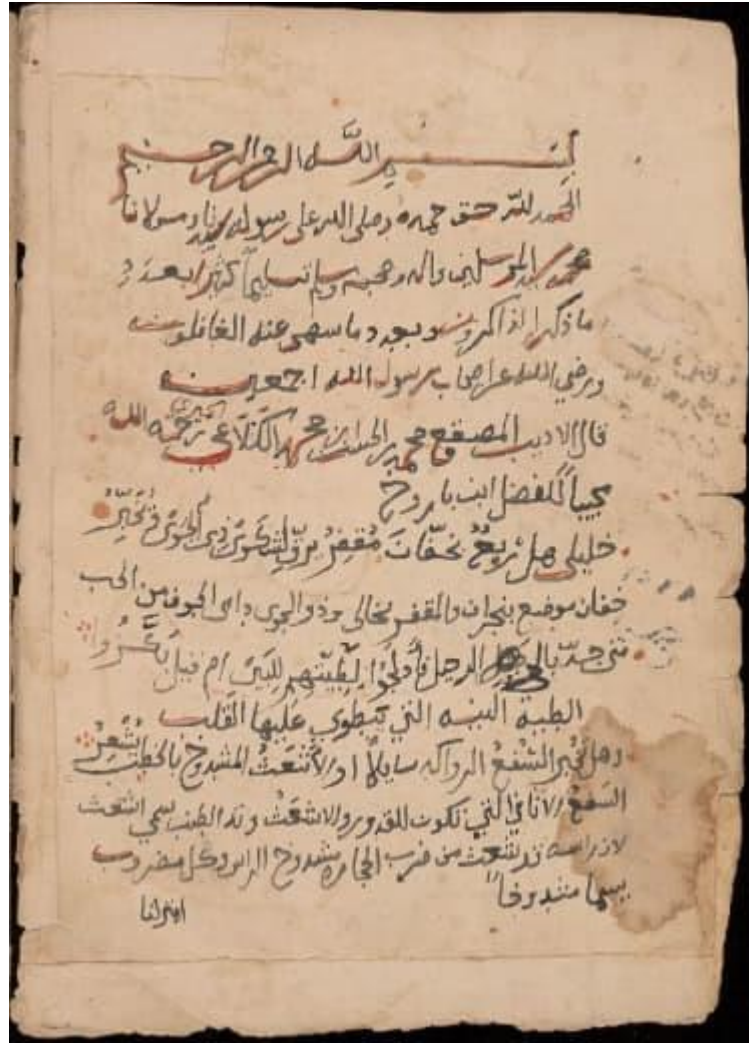 بسم الله الرحمن الرحيم
الحمد لله حق حمده وصلى الله على رسوله سيدنا ومولانا
محمد سيد المرسلين واله وصحبه وسلم تسليما كثيرا بعدد
ما ذكره الذاكرون وبعدد ما سهى عنه الغافلون
ورضي الله عن اصحاب رسول الله اجمعين
قال الاديب المصقع محمد بن الحسن بن محمد الكلاعي الحميري رحمه الله
مجيباً للمفضل ابن
خليلي هل ربعٌ بخفّان مُقفِرُ يرقّ لشكوى ذي الجوى فيُخبّرُ
خفان موضع بنجران والمقفر الخالي وذو الجوى داى الجوف من الحب
متى جدّ بالحي الرحيل فأدلجوا لطيّتهم للبين ام قبل بكّروا
الطيه النيه التي ينطوي عليها القلب
وهل تخبر السُّفعُ الرواكد سايلاً او الأشعثُ المشدوخ بالخطب يُشعِرُ
السفع الاثافي التي تكون للقدور والاشعث وتد الطنب سمي اشعث
لان راسه قد تشعث من ضرب الحجاره مشدوخ الراس وكل مضروب
يسما مشدوخاً